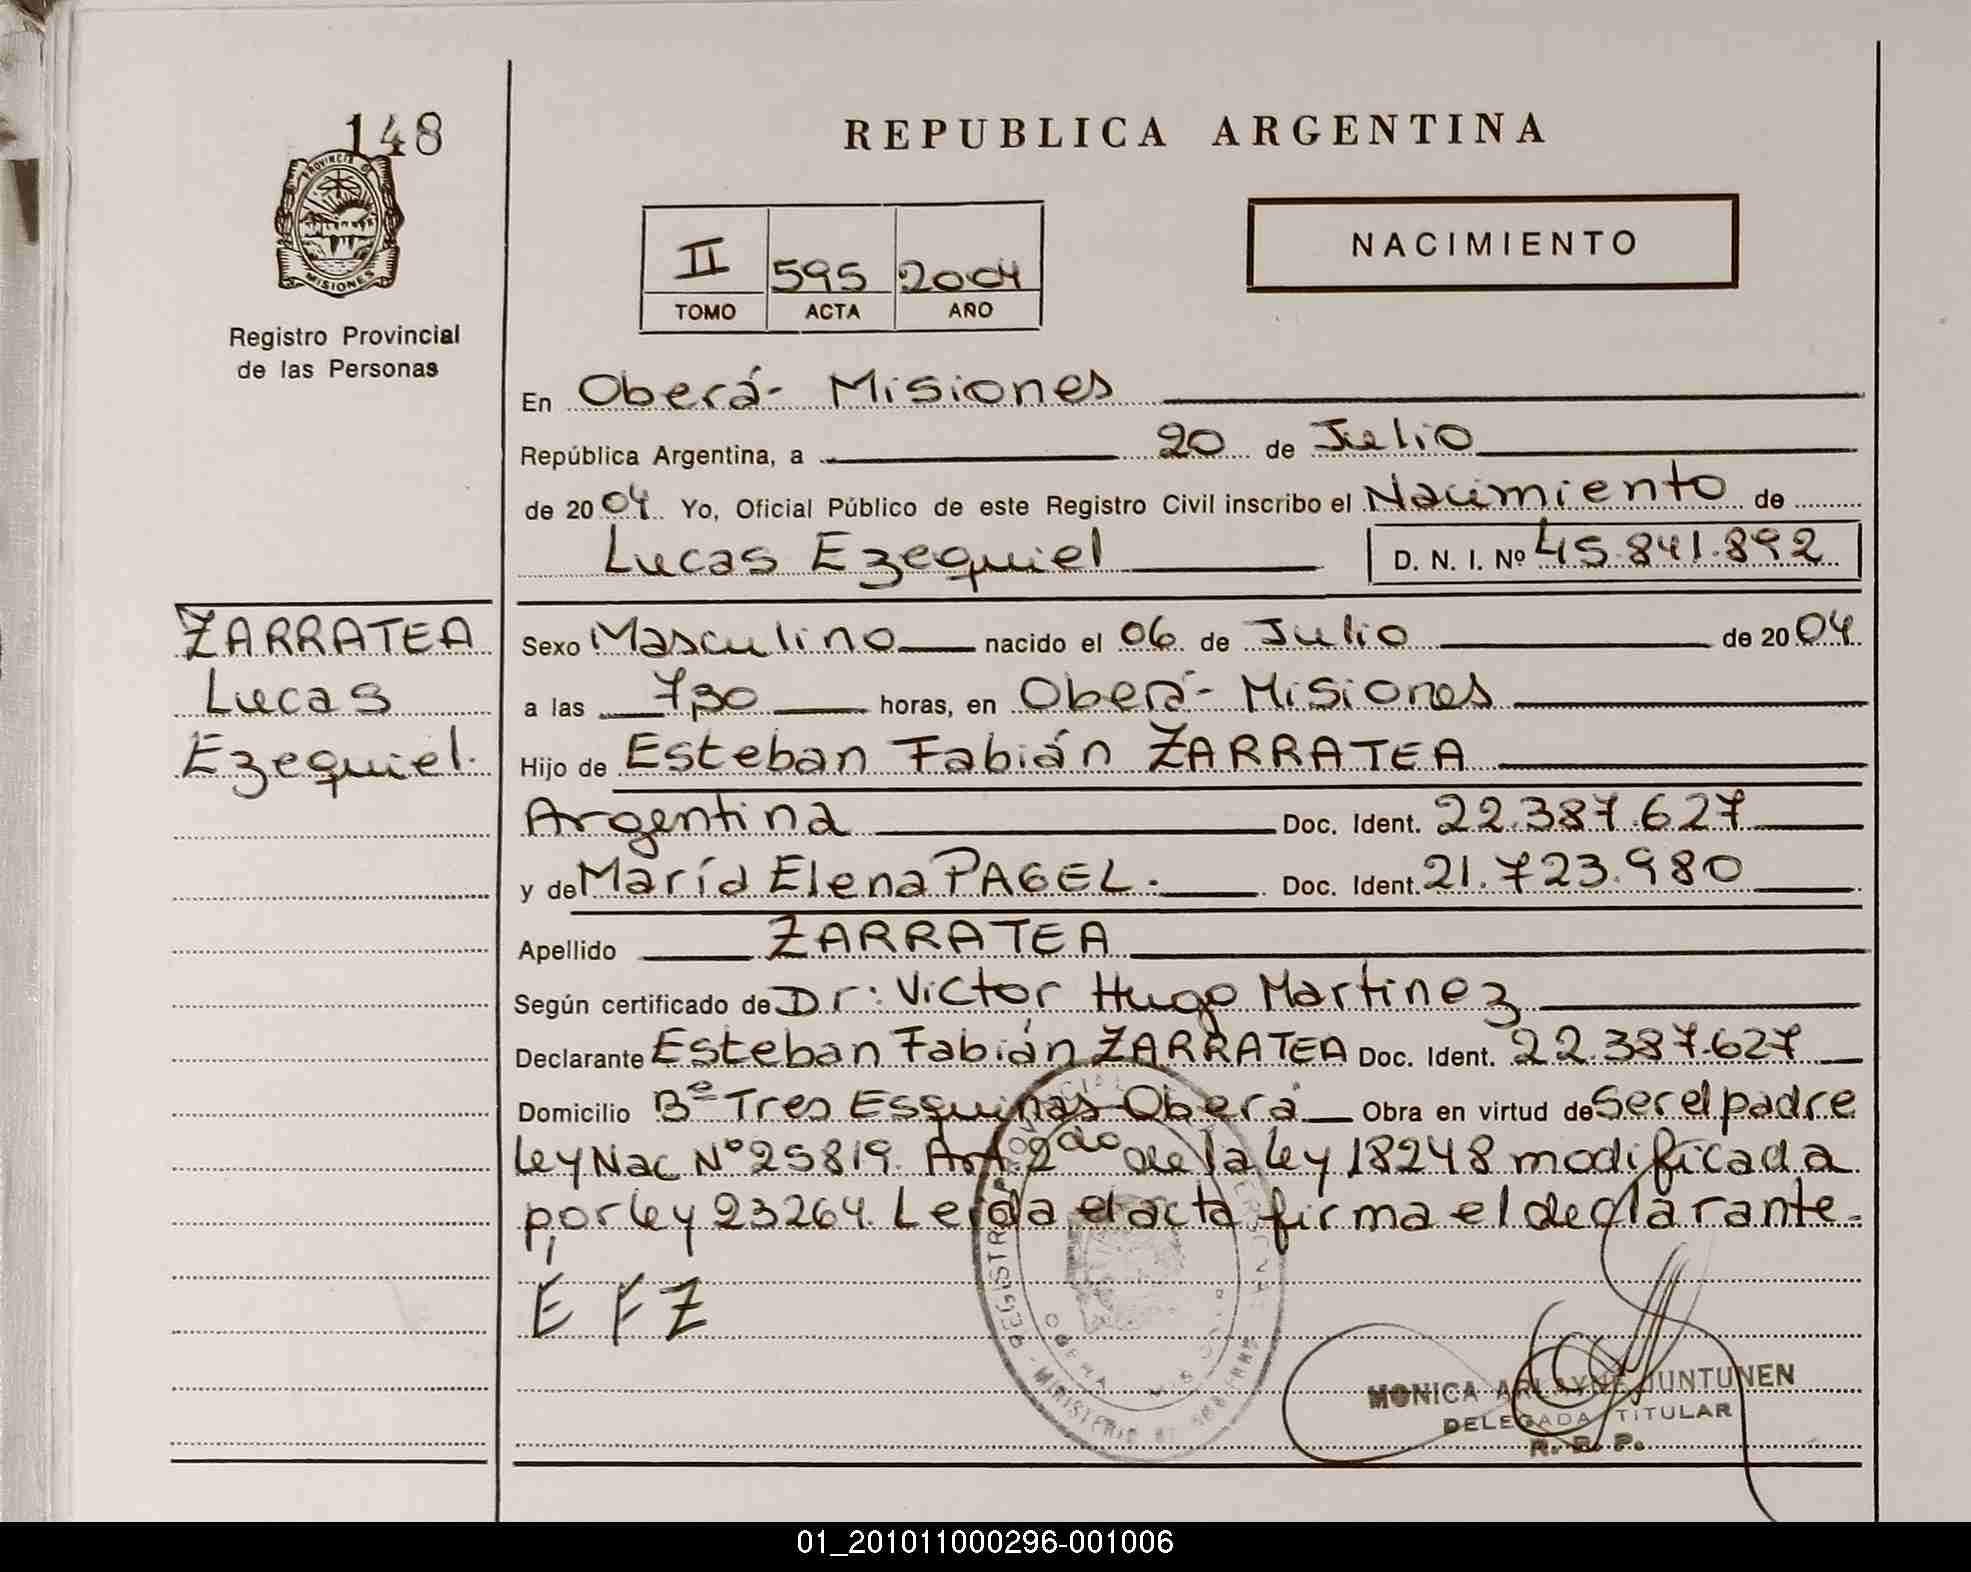 148
PROVINCIA DE
MISIONES
Registro Provincial
de las Personas
REPUBLICA ARGENTINA
II 595 2004
TOMO ACTA AÑO
NACIMIENTO
En Oberá- Misiones
República Argentina, a 20 de Julio
de 2004 Yo, Oficial Público de este Registro Civil inscribo el Nacimiento de
Lucas Ezequiel D. N. I. Nº 45.841.892
ZARRATEA
Lucas
Ezequiel.
Sexo Masculino nacido el 06 de Julio de 2004
a las 7,30 horas, en Oberá- Misiones
Hijo de Esteban Fabián ZARRATEA
Argentina Doc. Ident. 22.387.627
y de María Elena PAGEL. Doc. Ident. 21.723.980
Apellido ZARRATEA
Según certificado de Dr: Victor Hugo Martinez
Declarante Esteban Fabián ZARRATEA Doc. Ident. 22.387.627
Domicilio Bº Tres Esquinas-Oberá Obra en virtud de Ser el padre
Ley Nac Nº 25819. Art. 2do de la ley 18248 modificada
por ley 23264. Leida el acta firma el declarante.
E F Z
MONICA ARLAYNE JUNTUNEN
DELEGADA TITULAR
R. P. P.
01_201011000296-001006